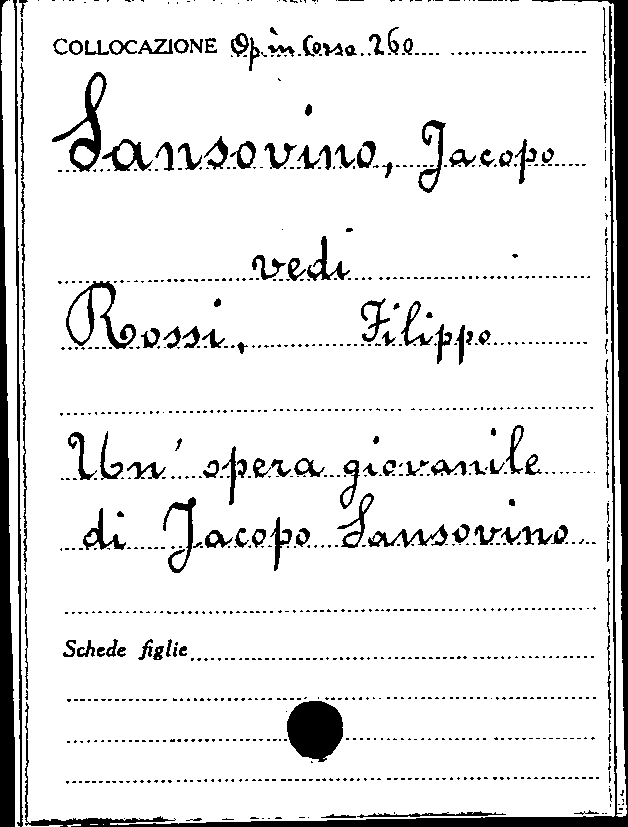 COLLOCAZIONE Op. in Corso 260
Sansovino, Jacopo
vedi
Rossi, Filippo
Un' opera giovanile
di Jacopo Sansovino
Schede figlie